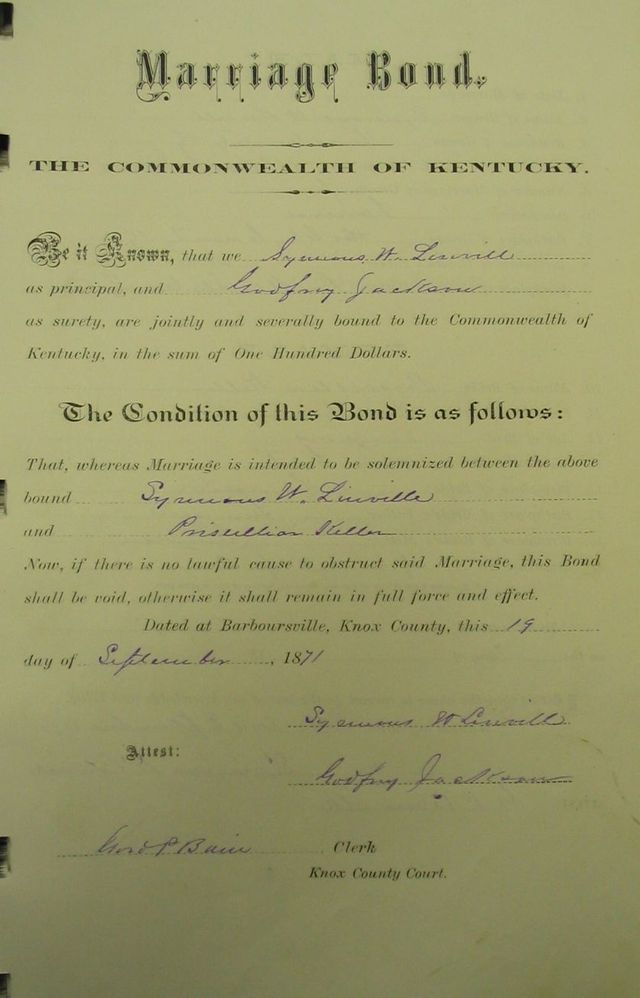 Marriage Bond.
THE COMMONWEALTH OF KENTUCKY.
Be it Known, that we Symous W. Linvill
as principal, and Godfrey Jackson
as surety, are jointly and severally bound to the Commonwealth of
Kentucky, in the sum of One Hundred Dollars.
The Condition of this Bond is as follows:
That, whereas Marriage is intended to be solemnized between the above
bound Symous W. Linville
and Keller
Now, if there is no lawful cause to obstruct said Marriage, this Bond
shall be void, otherwise it shall remain in full force and effect.
Dated at Barboursville, Knox County, this 19
day of September, 1871
Symous W Linvill
Attest:
Godfrey Jackson
Bain Clerk
Knox County Court.